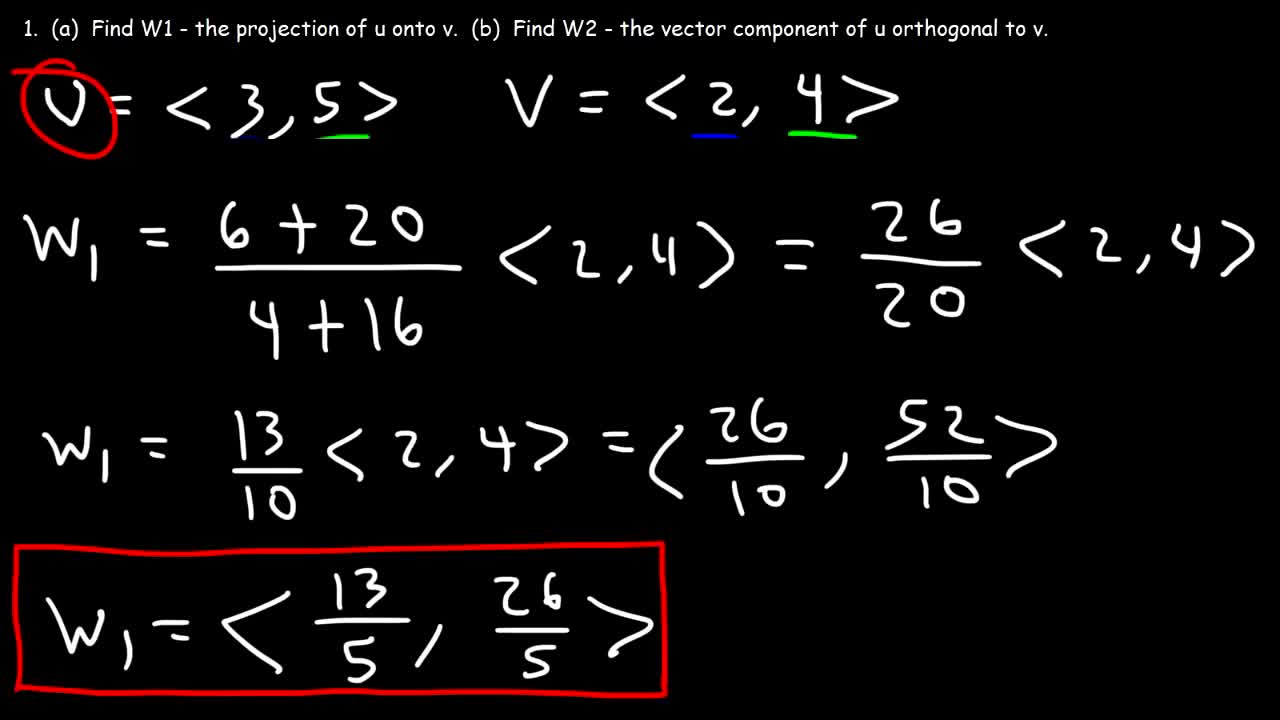 1. (a) Find W1 - the projection of u onto v. (b) Find W2 - the vector component of u orthogonal to v.
U = < 3, 5 > V = < 2, 4 >
W₁ = (6 + 20)/(4 + 16) < 2, 4 > = 26/20 < 2, 4 >
W₁ = 13/10 < 2, 4 > = < 26/10, 52/10 >
W₁ = < 13/5, 26/5 >